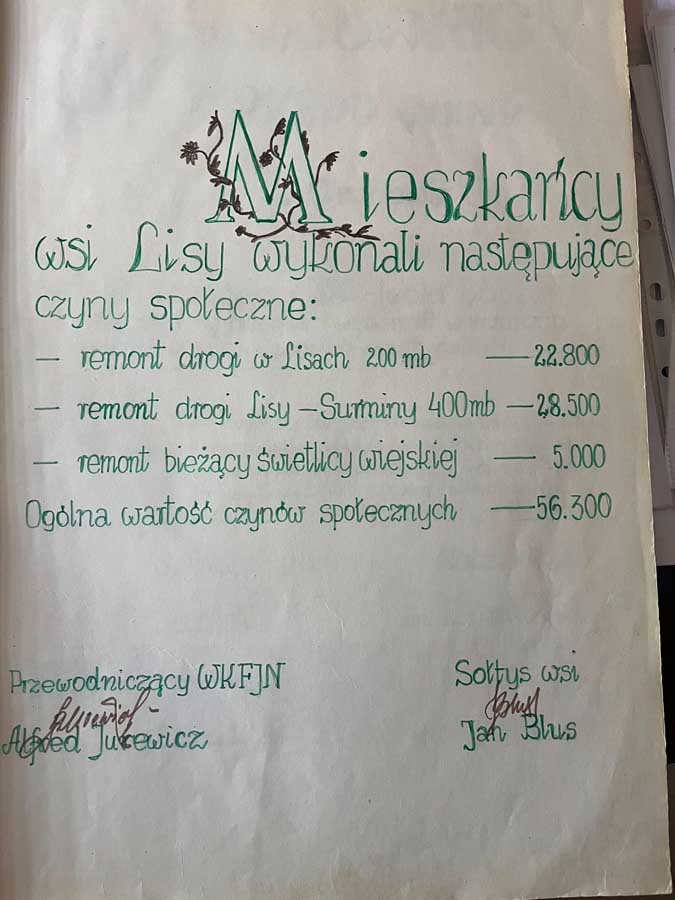 Mieszkańcy
wsi Lisy wykonali następujące
czyny społeczne:
— remont drogi w Lisach 200 mb — 22.800
— remont drogi Lisy – Surminy 400 mb — 28.500
— remont bieżący świetlicy wiejskiej — 5.000
Ogólna wartość czynów społecznych — 56.300
Przewodniczący WKFJN Sołtys wsi
Alfred Jurewicz Jan Blus